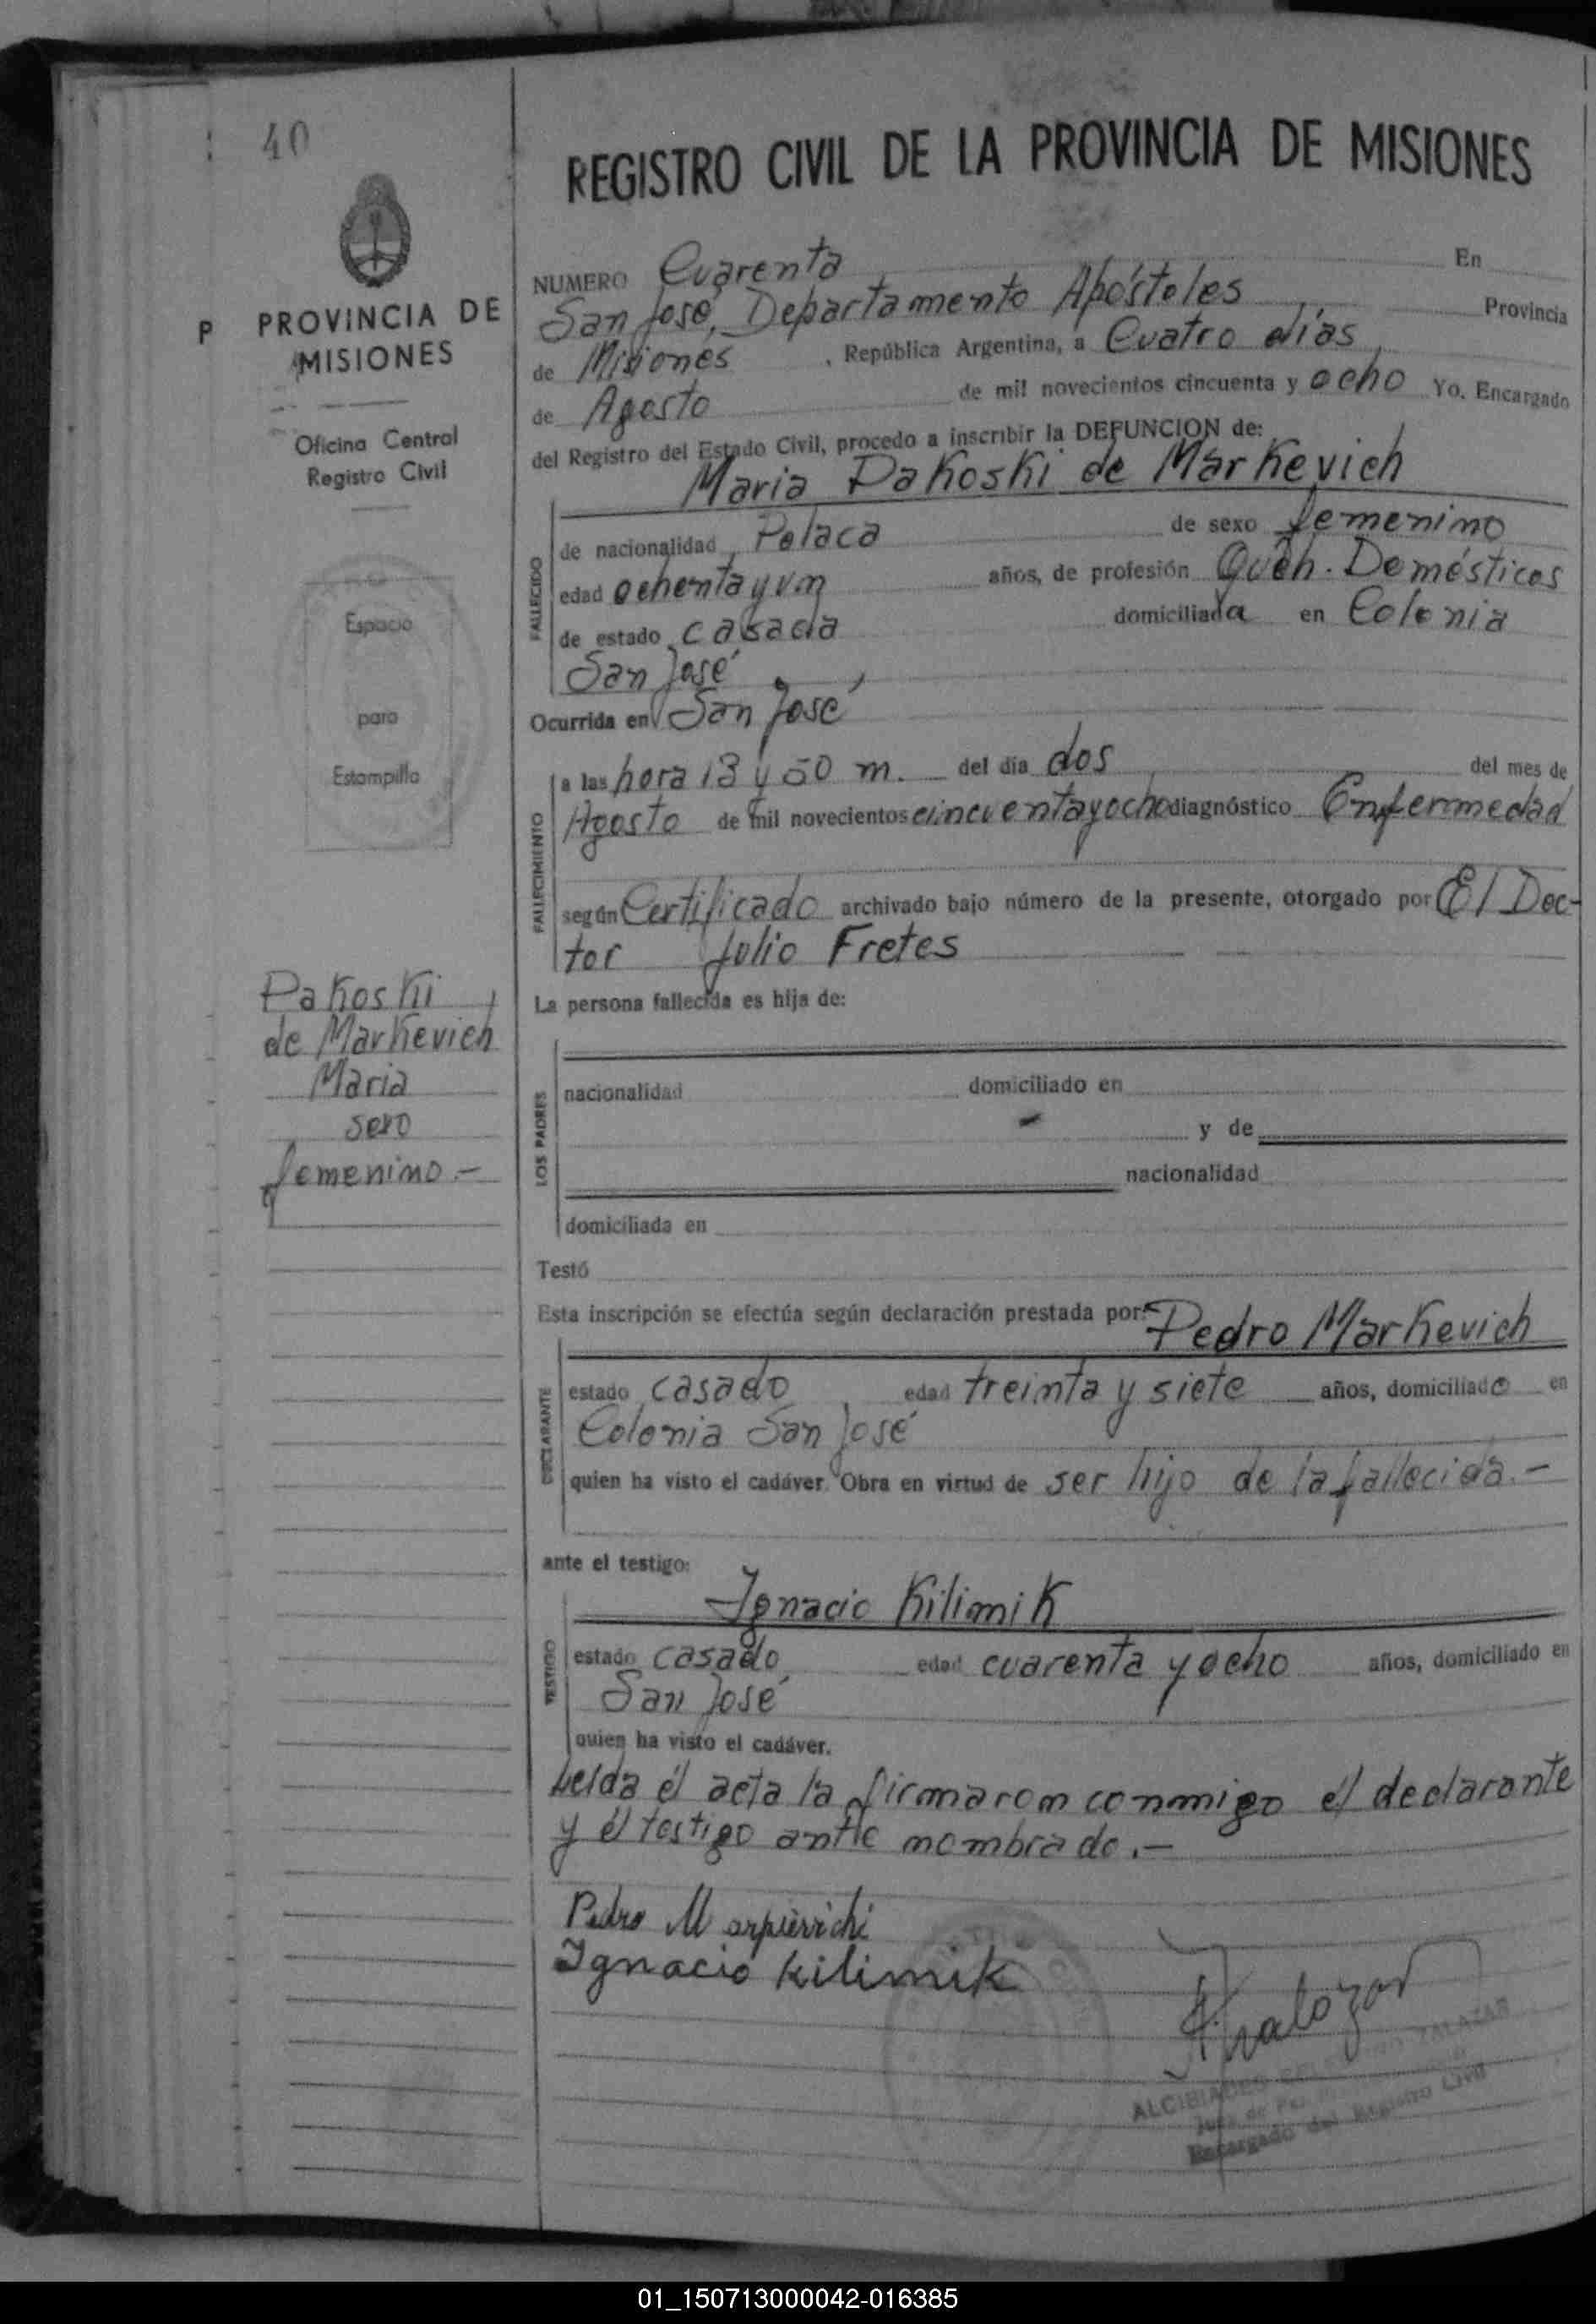 40
REGISTRO CIVIL DE LA PROVINCIA DE MISIONES
P PROVINCIA DE
MISIONES
Oficina Central
Registro Civil
Espacio
para
Estampilla
Pakoski
de Markevich
Maria
sexo
femenino.-
NUMERO Cuarenta En
San José, Departamento Apósteles Provincia
de Misiones, República Argentina, a Cuatro días
de Agosto de mil novecientos cincuenta y ocho Yo, Encargado
del Registro del Estado Civil, procedo a inscribir la DEFUNCION de:
Maria Pakoski de Markevich
FALLECIDO
de nacionalidad Polaca de sexo femenino
edad ochenta y un años, de profesión Queh. Domésticos
de estado casada domiciliada en Colonia
San José
Ocurrida en San José
FALLECIMIENTO
a las hora 13 y 50 m. del día dos del mes de
Agosto de mil novecientos cincuentayocho diagnóstico Enfermedad
según Certificado archivado bajo número de la presente, otorgado por El Doc-
tor Julio Fretes
La persona fallecida es hija de:
LOS PADRES
nacionalidad domiciliado en
y de
nacionalidad
domiciliada en
Testó
Esta inscripción se efectúa según declaración prestada por: Pedro Markevich
DECLARANTE
estado casado edad treinta y siete años, domiciliado en
Colonia San José
quien ha visto el cadáver. Obra en virtud de ser hijo de la fallecida.-
ante el testigo:
Ignacio Kilimik
TESTIGO
estado casado edad cuarenta y ocho años, domiciliado en
San José
quien ha visto el cadáver.
Leída él acta la firmaron conmigo él declarante
y él testigo ante nombrado.-
Pedro
Ignacio Kilimik
ALCIBIADES ZALAZAR
Juez de Paz
Encargado del Registro Civil
01_150713000042-016385